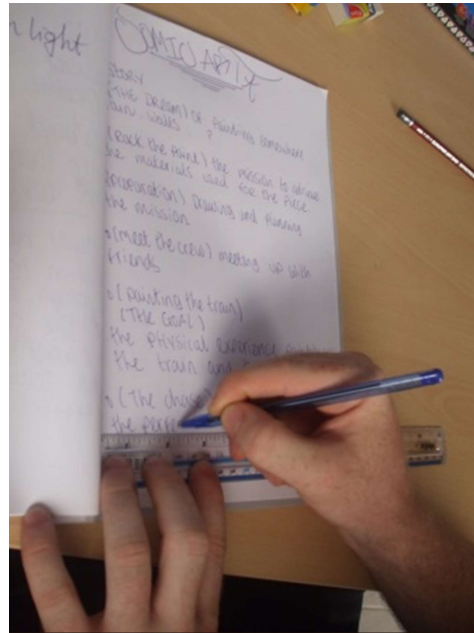 n light
COMIC ART
STORY
(THE DREAM) of Painting somewhere
train, walls ?
(Rack the Paint) the mission to achieve
the materials used for the Piece
(preparation) Drawing and Planning
the mission
(meet the crew) meeting up with
friends
(painting the train)
(THE GOAL)
the physical experience
the train and
(The chase)
the perfe